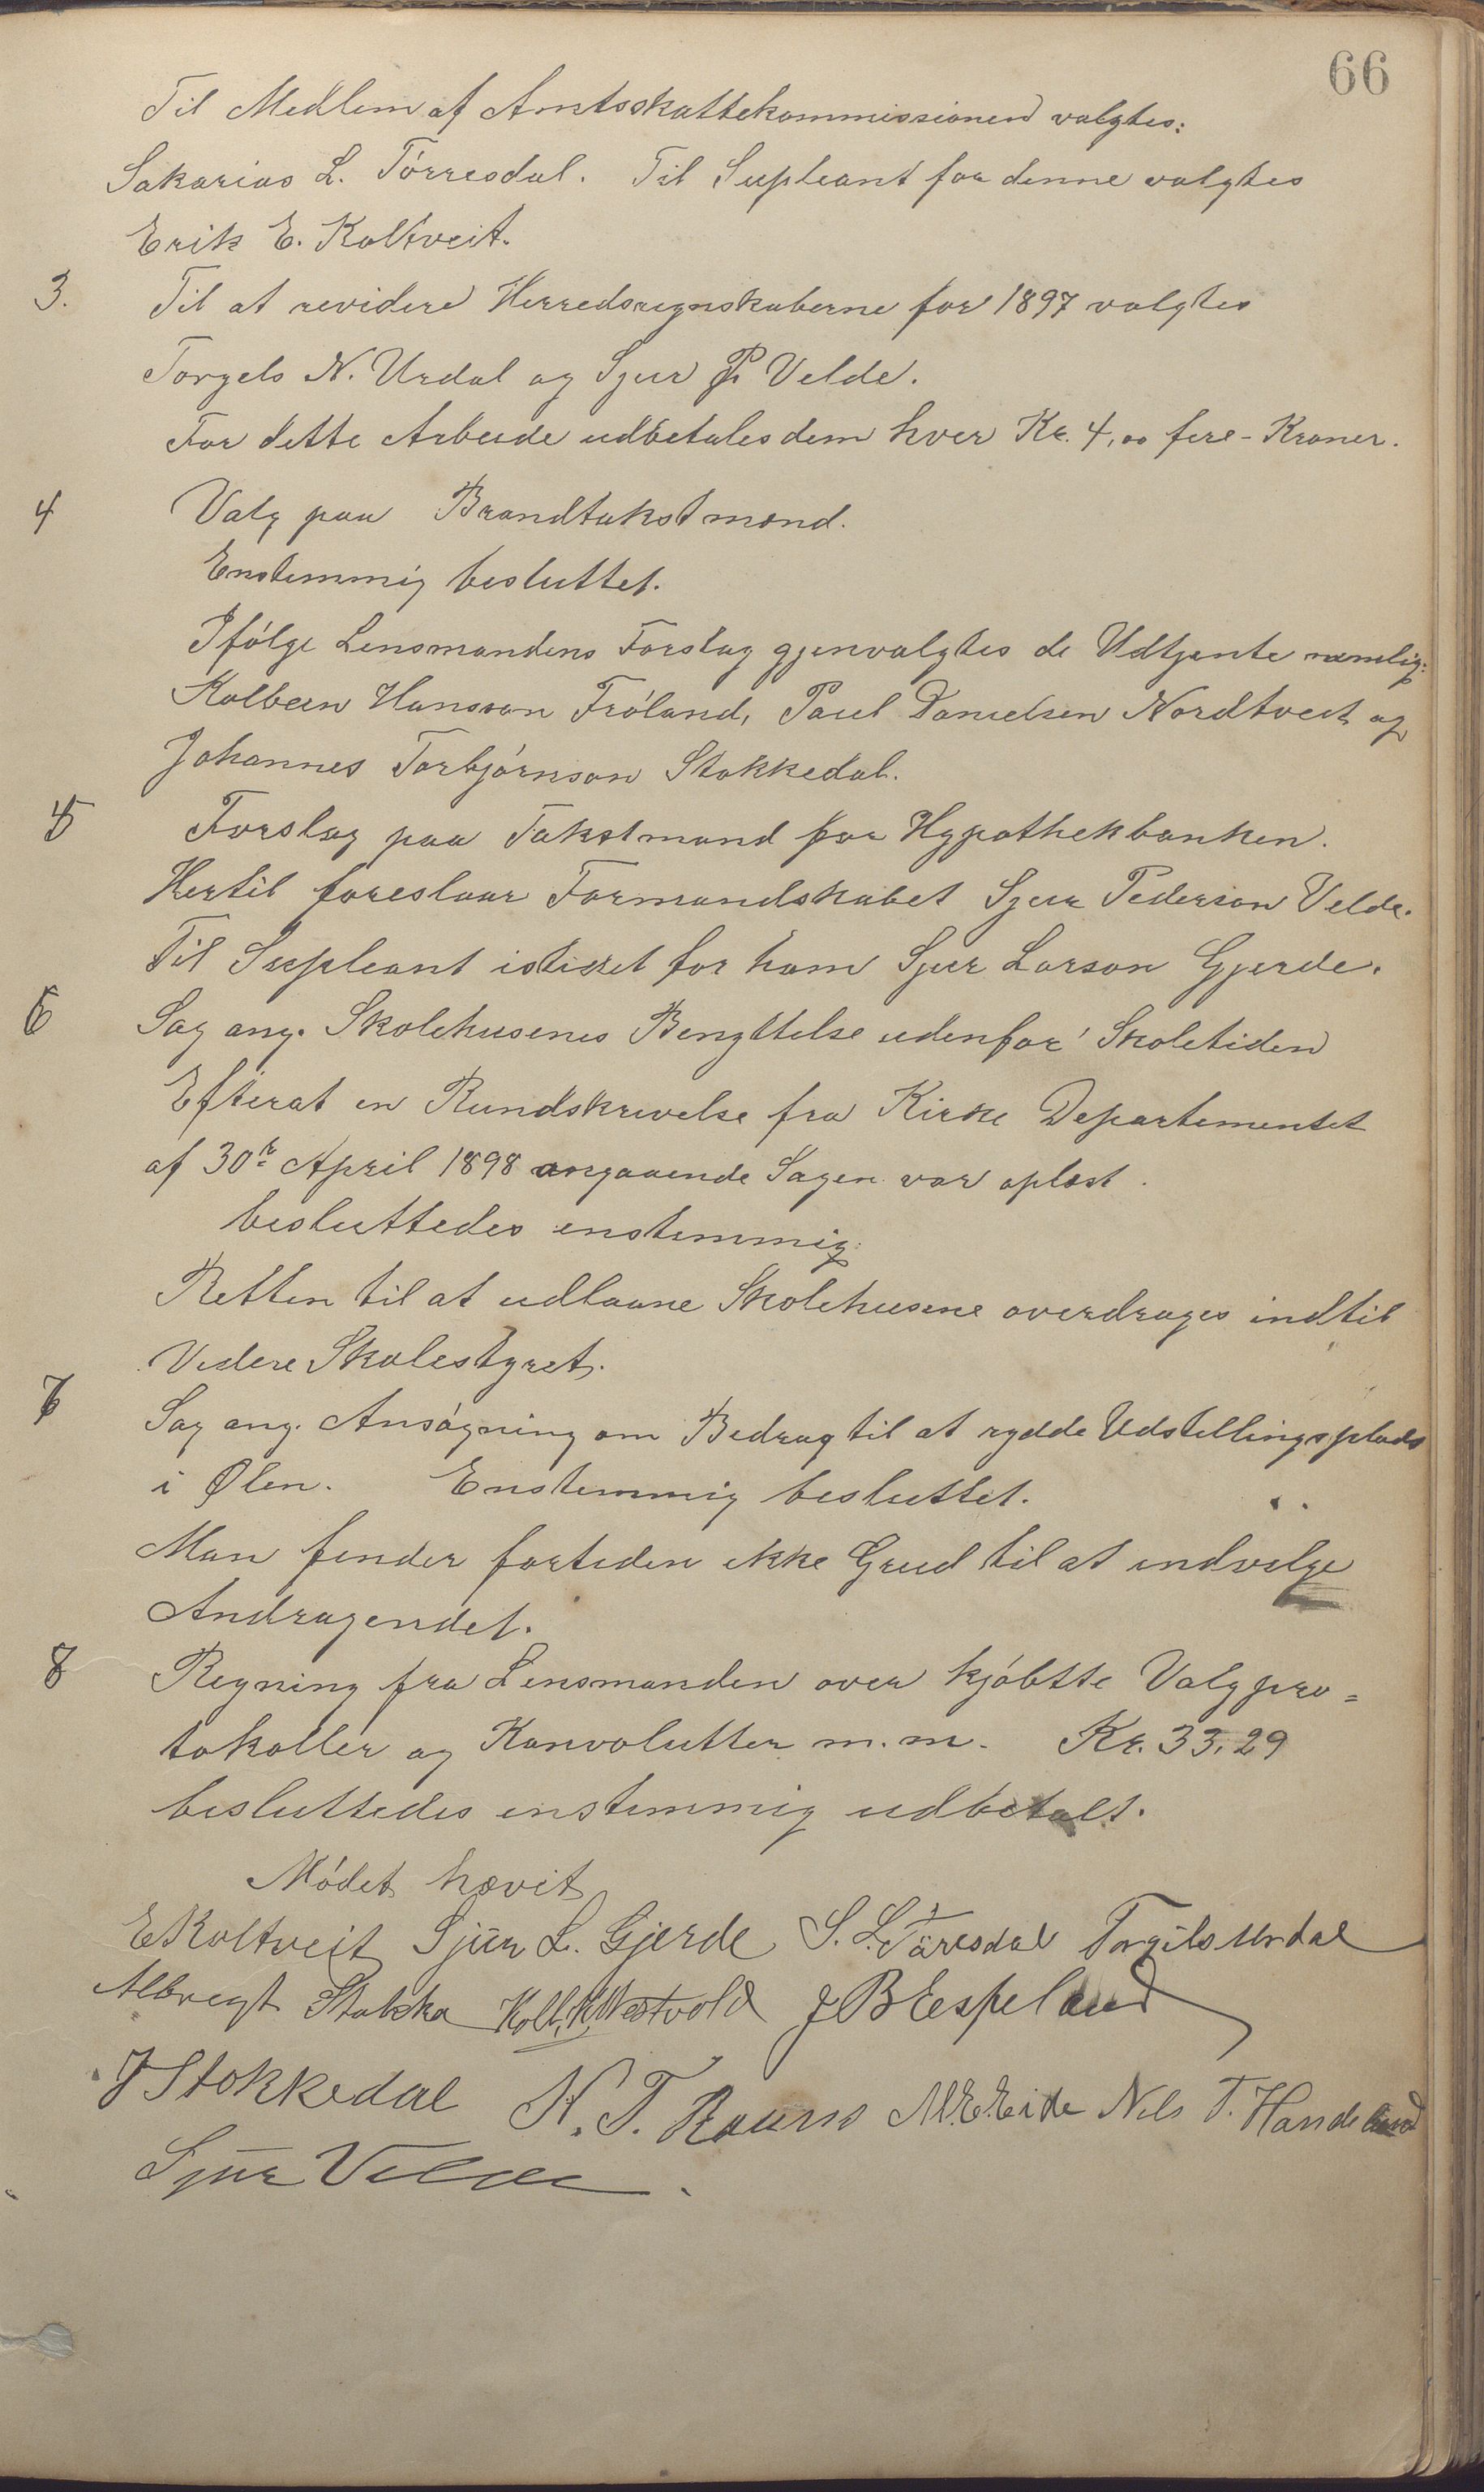 66
Til Medlem af Amtsskattekommissionen valgtes:
Sakarias L. Tórresdal. Til Supleant for denne valgtes
Erik E. Koltveit.
3. Til at revidere Herredsregnskaberne for 1897 valgtes
Torgels N. Urdal og Sjur P. Velde.
For dette Arbeide udbetales dem hver Kr. 4,00 fire-Kroner.
4 Valg paa Brandtakstmænd.
Enstemmig besluttet.
Ifólge Lensmandens Forslag gjenvalgtes de Udtjente nemlig:
Kolbeen Hansson Fróland, Paul Danielsen Nordtveit og
Johannes Torbjórnson Stokkedal.
5 Forslag paa Takstmand for Hypothekbanken.
Hertil foreslaar Formandskabet Sjur Pederson Velde.
Til Supleant istedet for ham Sjur Larson Gjerde.
6 Sag ang. Skolehusenes Benyttelse udenfor Skoletiden
Efterat en Rundskrivelse fra Kirke Departementet
af 30te April 1898 angaaende Sagen var oplæst.
besluttedes enstemmig:
Retten til at udlaane Skolehusene overdrages indtil
Videre Skolestyret.
7 Sag ang. Ansógning om Bedrag til at rydde Udstillingsplads
i Ølen. Enstemmig besluttet.
Man finder fortiden ikke Grud til at indvilge
Andragendet.
8 Regning fra Lensmanden over kjóbtte Valgpro=
tokoller og Konvolutter m.m. Kr. 33,29
besluttedes enstemmig udbetalt.
Módet hævet
E Koltveit Sjur L. Gjerde S. L. Tørresdal Torgils Urdal
Albregt Stokka Kolb. H. Westvold J B Espeland
J Stokkedal N. T. M.E.Eide Nils T. Handeland
Sjur Velde.